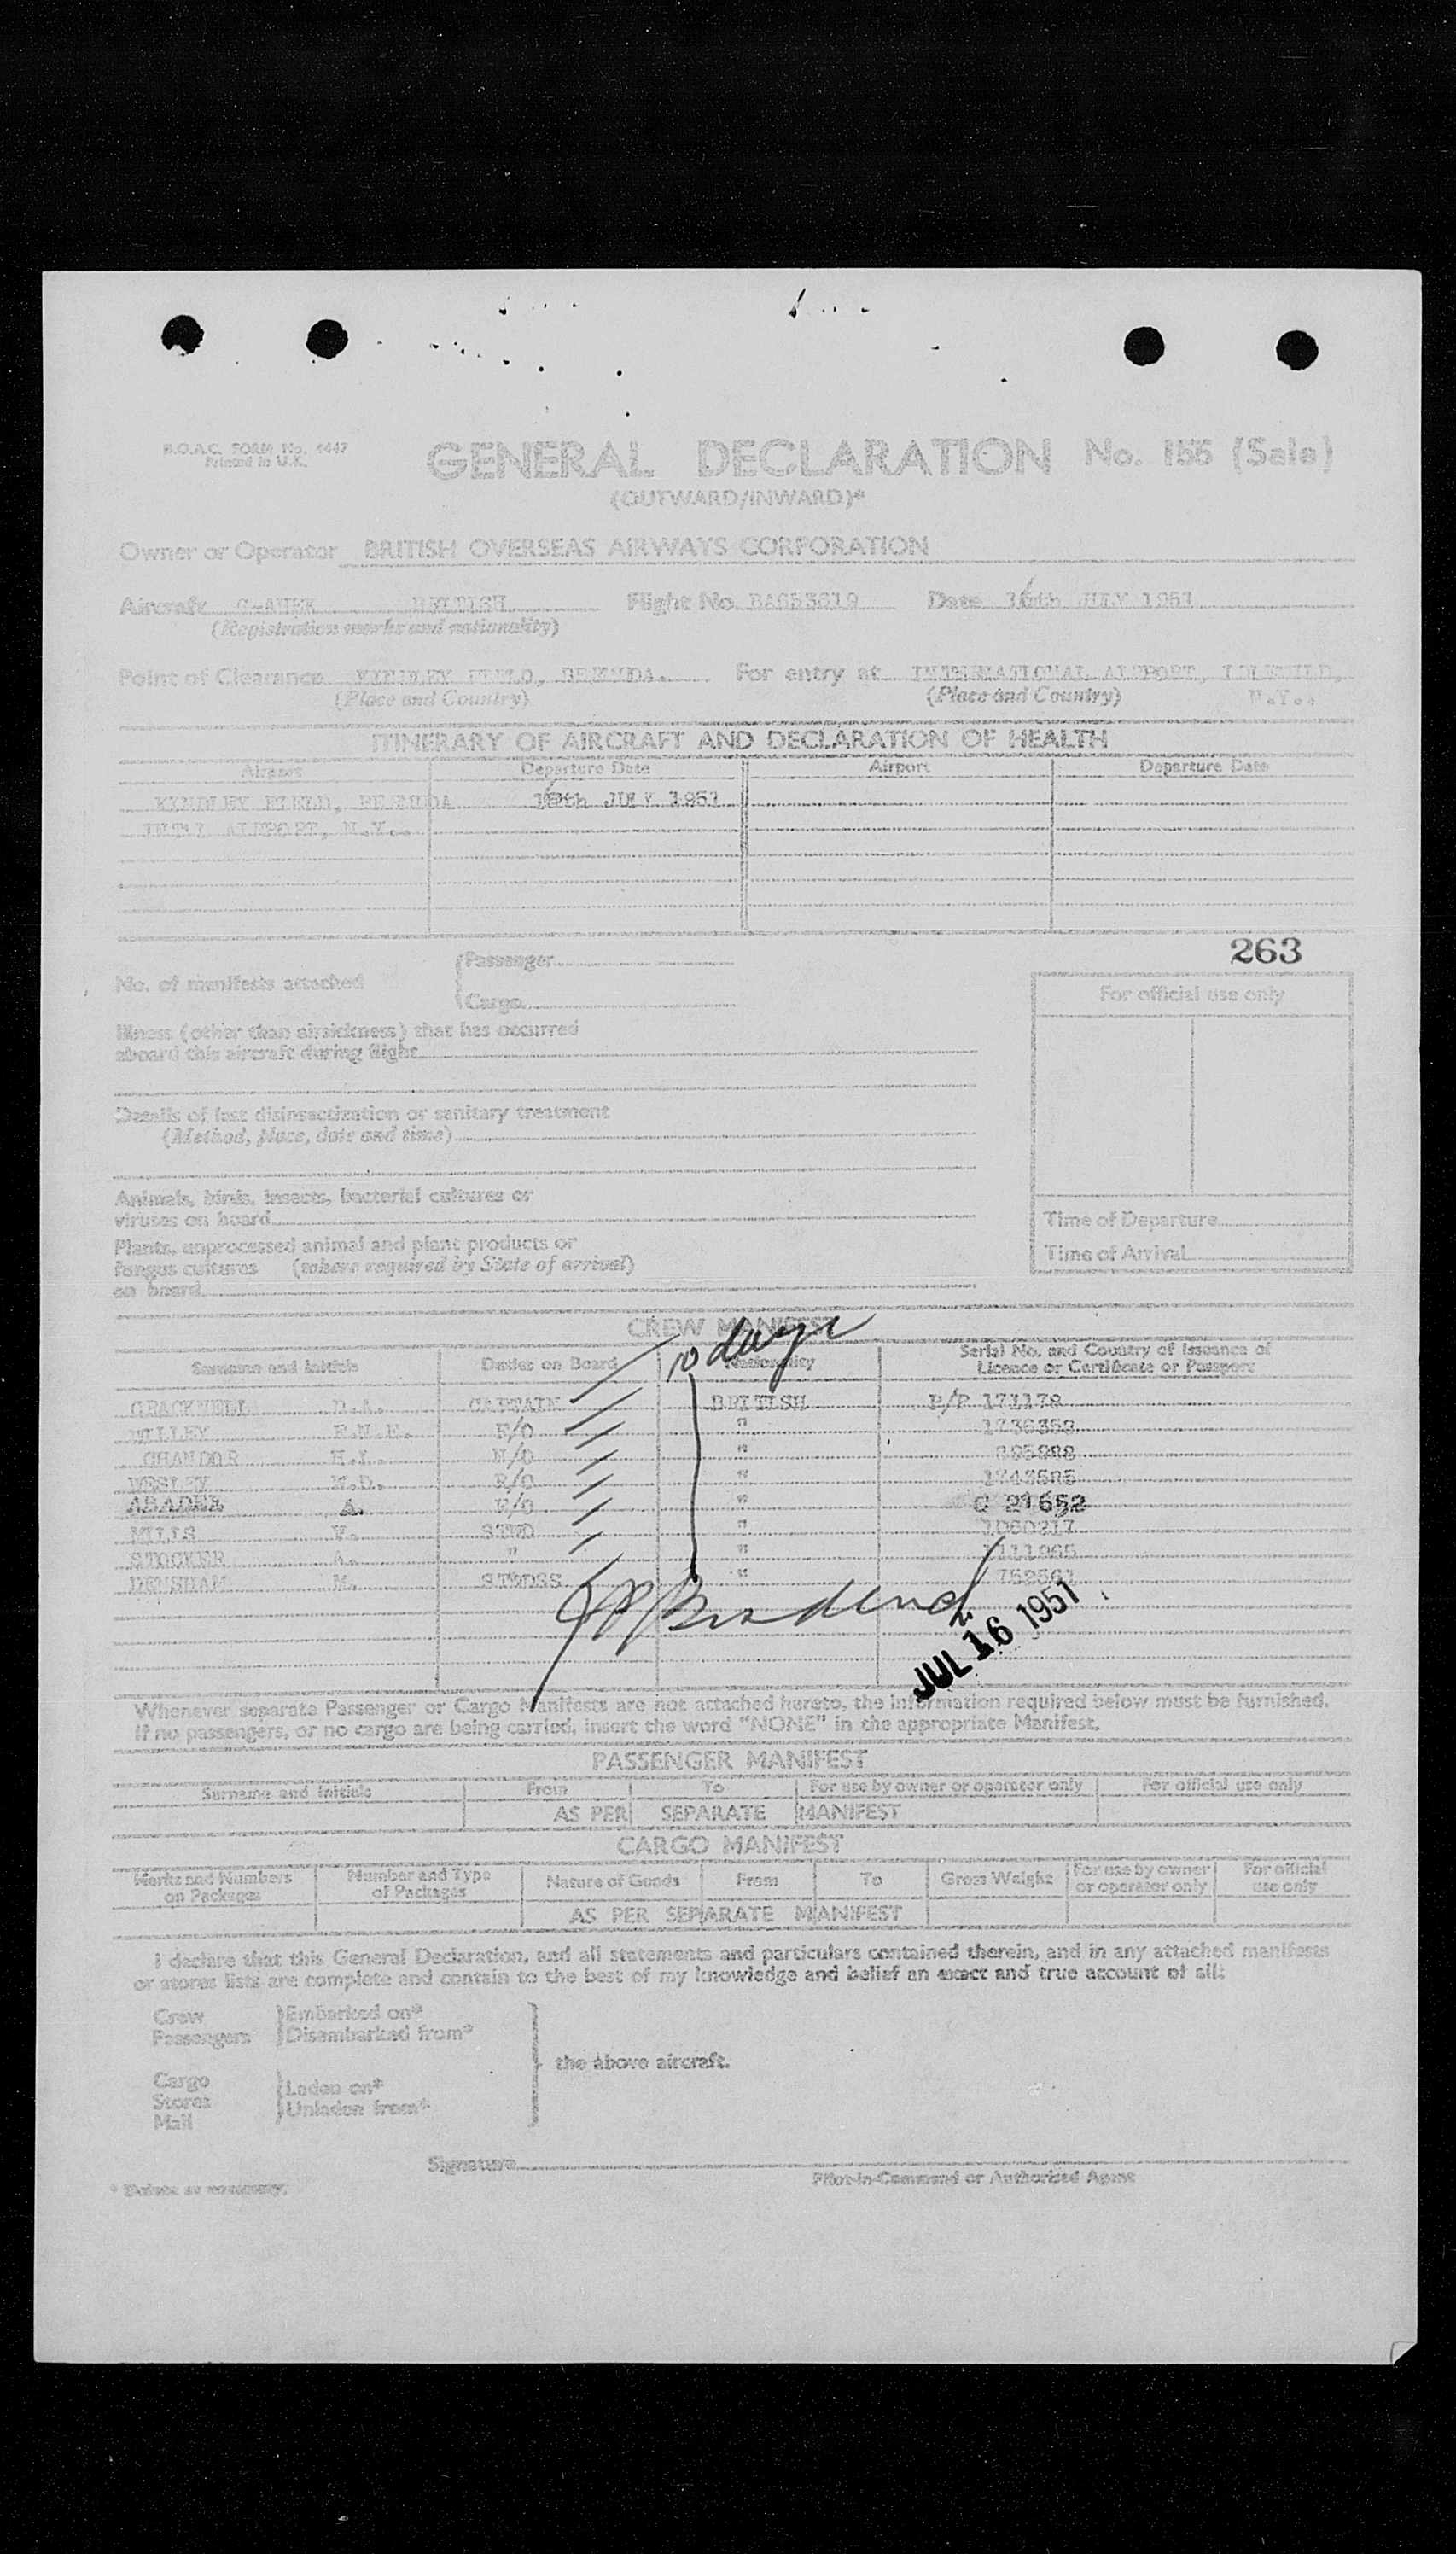 B.O.A.C. FORM No. 4447
Printed in U.K.
GENERAL DECLARATION No. 155 (Sale)
(OUTWARD/INWARD)*
Owner or Operator BRITISH OVERSEAS AIRWAYS CORPORATION
Aircraft BRITISH Flight No. Date 16th JULY 1951
(Registration marks and nationality)
Point of Clearance KINDLEY FIELD, BERMUDA. For entry at INTERNATIONAL AIRPORT, IDLEWILD,
(Place and Country) (Place and Country) N.Y..
ITINERARY OF AIRCRAFT AND DECLARATION OF HEALTH
Airport Departure Date Airport Departure Date
KINDLEY FIELD, BERMUDA 16th JULY 1951
INT'L AIRPORT, N.Y..
263
No. of manifests attached
Passenger
Cargo
For official use only
Illness (other than airsickness) that has occurred
aboard this aircraft during flight
Details of last disinsectization or sanitary treatment
(Method, place, date and time)
Animals, birds, insects, bacterial cultures or
viruses on board
Time of Departure
Plants, unprocessed animal and plant products or
fungus cultures (where required by State of arrival)
on board
Time of Arrival
CREW MANIFEST
10 days
Surname and Initials Duties on Board Nationality Serial No. and Country of Issuance of
Licence or Certificate or Passport
CRACKNELL D.A. CAPTAIN BRITISH P/P 171178
WILLEY F/O " 1736358
CHANDOR H.I. N/O "
WESLEY R/O "
ABADEE A. E/O " C 21652
MILLS V. STWD " 1060217
STOCKER A. " "
DENSHAM M. STWDSS "
JUL 16 1951
Whenever separate Passenger or Cargo Manifests are not attached hereto, the information required below must be furnished.
If no passengers, or no cargo are being carried, insert the word "NONE" in the appropriate Manifest.
PASSENGER MANIFEST
Surname and Initials From To For use by owner or operator only For official use only
AS PER SEPARATE MANIFEST
CARGO MANIFEST
Marks and Numbers on Packages Number and Type of Packages Nature of Goods From To Gross Weight For use by owner or operator only For official use only
AS PER SEPARATE MANIFEST
I declare that this General Declaration, and all statements and particulars contained therein, and in any attached manifests
or stores lists are complete and contain to the best of my knowledge and belief an exact and true account of all:
Crew Embarked on*
Passengers Disembarked from*
the above aircraft.
Cargo
Stores Laden on*
Mail Unladen from*
Signature
Pilot-in-Command or Authorized Agent
* Delete as necessary.